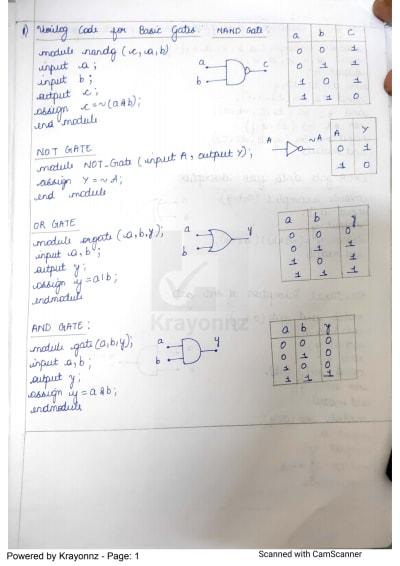 1) Verilog Code for Basic Gates: NAND Gate:
module nandg (c, a, b)
input a;
input b;
output c;
assign c = ~(a&b);
end module
a
b
c
a b c
0 0 1
0 1 1
1 0 1
1 1 0
NOT GATE
module NOT_Gate (input A, output Y);
assign Y = ~A;
end module
A
~A
A Y
0 1
1 0
OR GATE
module orgate (a, b, y);
input a, b;
output y;
assign y = a|b;
endmodule
a
b
y
a b y
0 0 0
0 1 1
1 0 1
1 1 1
Krayonnz
AND GATE:
module gate (a, b, y);
input a, b;
output y;
assign y = a&b;
endmodule
a
b
y
a b y
0 0 0
0 1 0
1 0 0
1 1 1
Powered by Krayonnz - Page: 1
Scanned with CamScanner